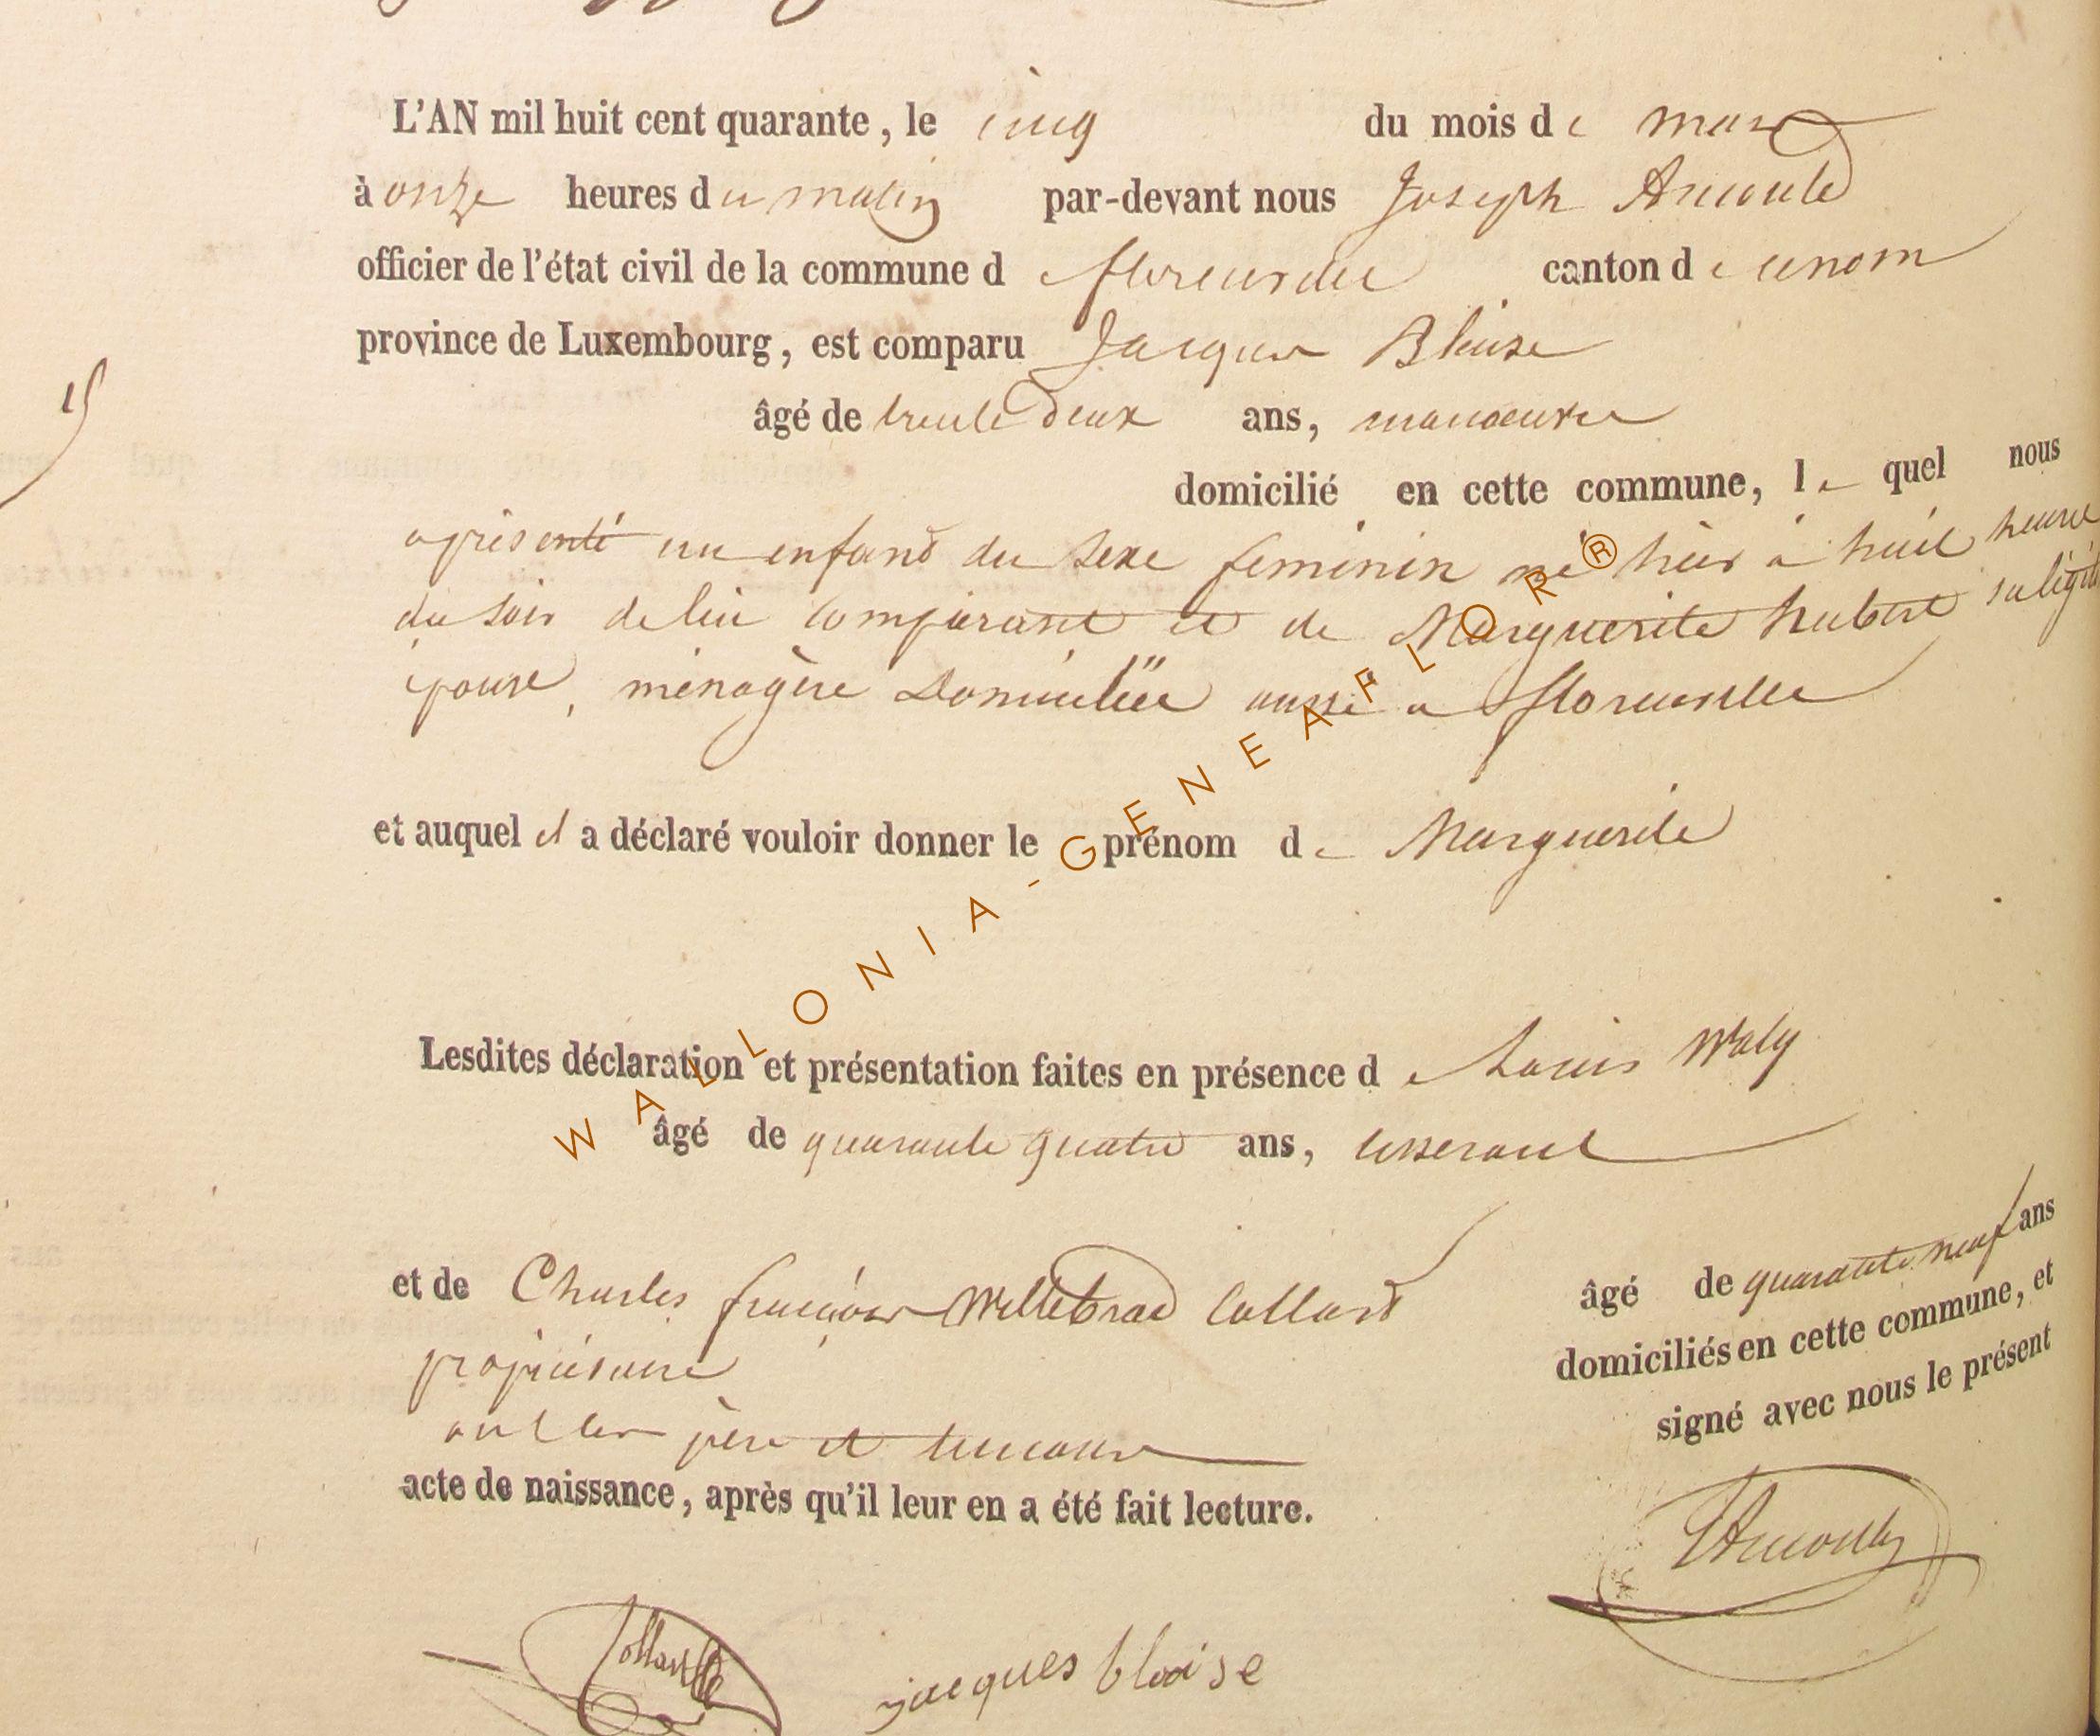 L'AN mil huit cent quarante, le cinq du mois de mars
à onze heures du matin par-devant nous Joseph Arnould
officier de l'état civil de la commune de florenville canton d
province de Luxembourg, est comparu Jacques Blaise
15
âgé de trente deux ans, manoeuvre
domicilié en cette commune, le quel nous
a présenté un enfant du sexe feminin né hier à huit heures
du soir de lui comparant et de Marguerite hubert sa
épouse, ménagère Domiciliée aussi a florenville
et auquel il a déclaré vouloir donner le prénom de Marguerite
Lesdites déclaration et présentation faites en présence de Louis Waly
âgé de quarante quatre ans, tisserant
et de Charles françois Willebrod Collard âgé de quarante neuf ans
propriétaire domiciliés en cette commune, et
ont les père et temoins signé avec nous le présent
acte de naissance, après qu'il leur en a été fait lecture.
JArnould
Collard
jacques blaise
WALLONIA-GENEAFLOR®